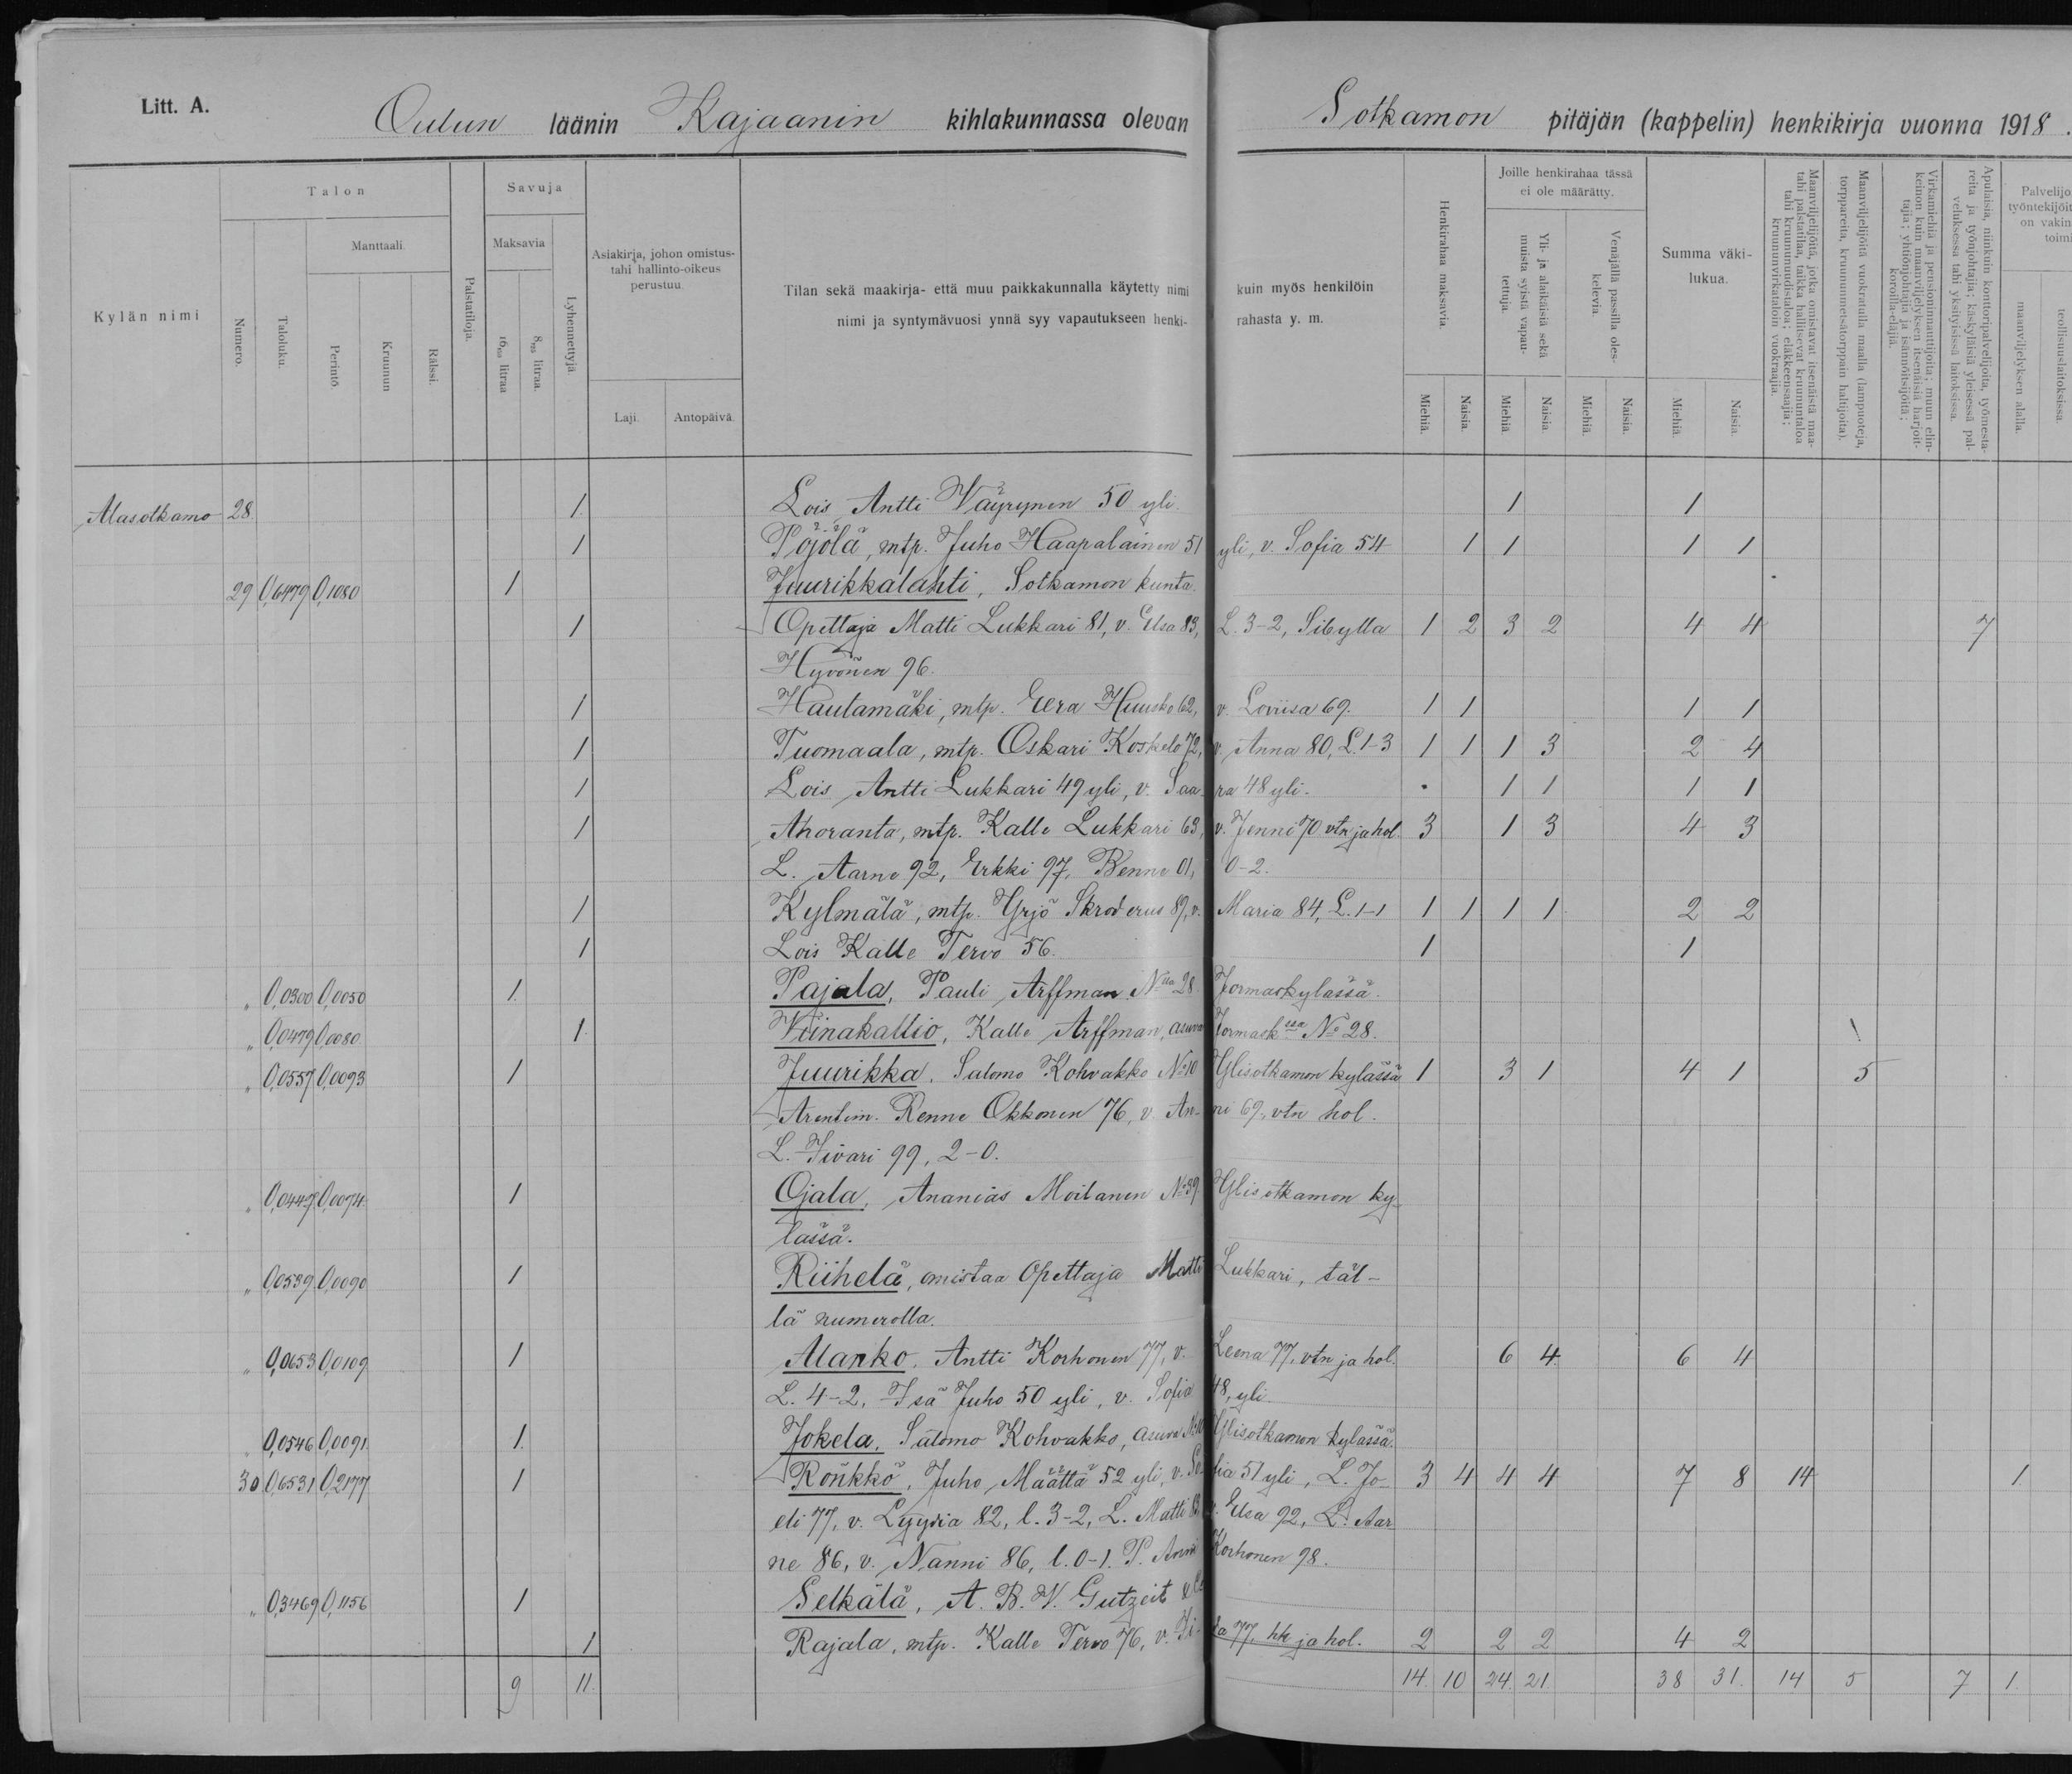 Litt. A.
Oulun läänin Kajaanin kihlakunnassa olevan Sotkamon pitäjän (kappelin) henkikirja vuonna 1918.
Kylän nimi
Talon
Numero.
Taloluku.
Manttaali.
Perintö.
Kruunun
Rälssi.
Palstatiloja.
Savuja
Maksavia
16,488 litraa
8,193 litraa.
Lyhennettyjä.
Asiakirja, johon omistus-
tahi hallinto-oikeus
perustuu.
Laji.
Antopäivä.
Tilan sekä maakirja- että muu paikkakunnalla käytetty nimi kuin myös henkilöin
nimi ja syntymävuosi ynnä syy vapautukseen henki- rahasta y. m.
Henkirahaa maksavia.
Miehiä.
Naisia.
Joille henkirahaa tässä
ei ole määrätty.
Yli- ja alaikäisiä sekä
muista syistä vapau-
tettuja.
Miehiä
Naisia.
Venäjällä passilla oles-
kelevia.
Miehiä.
Naisia.
Summa väki-
lukua.
Miehiä.
Naisia.
Maanviljelijöitä, jotka omistavat itsenäistä maa-
tahi palstatilaa, taikka hallitsevat kruununtaloa
tahi kruununuudistaloa; eläkkeensaajia;
kruununvirkataloin vuokraajia.
Maanviljelijöitä vuokratulla maalla (lampuoteja,
torppareita, kruununmetsätorppain haltijoita).
Virkamiehiä ja pensioninnauttijoita; muun elin-
keinon kuin maanviljelyksen itsenäisiä harjoit-
tajia; yhtiönjohtajia ja isännöitsijöitä;
koroilla-eläjiä.
Apulaisia, niinkuin konttoripalvelijoita, työmesta-
reita ja työnjohtajia; käskyläisiä yleisessä pal-
veluksessa tahi yksityisissä laitoksissa.
Palvelijo
työntekijöit
on vakin
toimi
maanviljelyksen alalla.
teollisuuslaitoksissa
Alasotkamo 28. 1. Lois Antti Väyrynen 50 yli. 1 1
1 Pöjölä, mtp. Juho Haapalainen 51 yli, v. Sofia 54 1 1 1 1
29 0,6479 0,1080 1 Juurikkalahti, Sotkamon kunta.
1 Opettaja Matti Lukkari 81, v. Elsa 83, L. 3-2, Sibylla 1 2 3 2 4 4 7
Hyvönen 96.
1 Hautamäki, mtp. Eera Huusko 62, v. Loviisa 69. 1 1 1 1
1 Tuomaala, mtp. Oskari Koskelo 72, v. Anna 80, L. 1-3 1 1 1 3 2 4
1 Lois Antti Lukkari 49 yli, v. Saa- ra 48 yli. 1 1 1 1
1 Ahoranta, mtp. Kalle Lukkari 63, v. Jenni 70 vtn ja hol. 3 1 3 4 3
L. Aarne 92, Erkki 97, Benno 01, 0-2.
1 Kylmälä, mtp. Yrjö Skroderus 89, v. Maria 84, L. 1-1 1 1 1 1 2 2
1 Lois Kalle Tervo 56. 1 1
" 0,0300 0,0050 1. Pajala, Pauli Arffman Nlla 28 Jormaskylässä.
" 0,0479 0,0080 1. Viinakallio, Kalle Arffman, asuva Jormask ssa No 28.
" 0,0557 0,0093 1 Juurikka. Salomo Kohvakko No 10 Ylisotkamon kylässä 1 3 1 4 1 5
Arentim. Renne Okkonen 76, v. An- ni 69, vtn hol.
L. Iivari 99, 2-0.
" 0,0447 0,0074. 1 Ojala, Ananias Moilanen No 39 Ylisotkamon ky-
lässä.
" 0,0539 0,0090 1 Riihelä, omistaa Opettaja Matti Lukkari, täl-
lä numerolla.
" 0,0653 0,0109 1 Alanko, Antti Korhonen 77, v. Leena 77, vtn ja hol. 6 4 6 4
L. 4-2, Isä Juho 50 yli, v. Sofia 48, yli.
" 0,0546 0,0091. 1. Jokela, Salomo Kohvakko, asuva No 10 Ylisotkamon kylässä.
30 0,6531 0,2177 1 Rönkkö, Juho Määttä 52 yli, v. So- fia 51 yli, L. Jo- 3 4 4 4 7 8 14 1.
eli 77, v. Lyydia 82, l. 3-2, L. Matti v. Elsa 92, L. Aar-
ne 86, v. Nanni 86, l. 0-1. P. Anni Korhonen 98.
" 0,3469 0,1156 1 Selkälä, A. B. W. Gutzeit & Co
1 Rajala, mtp. Kalle Tervo 76, v. Ii- da 77, hk ja hol. 2 2 2 4 2
9 11. 14. 10 24. 21. 38 31. 14 5 7 1.